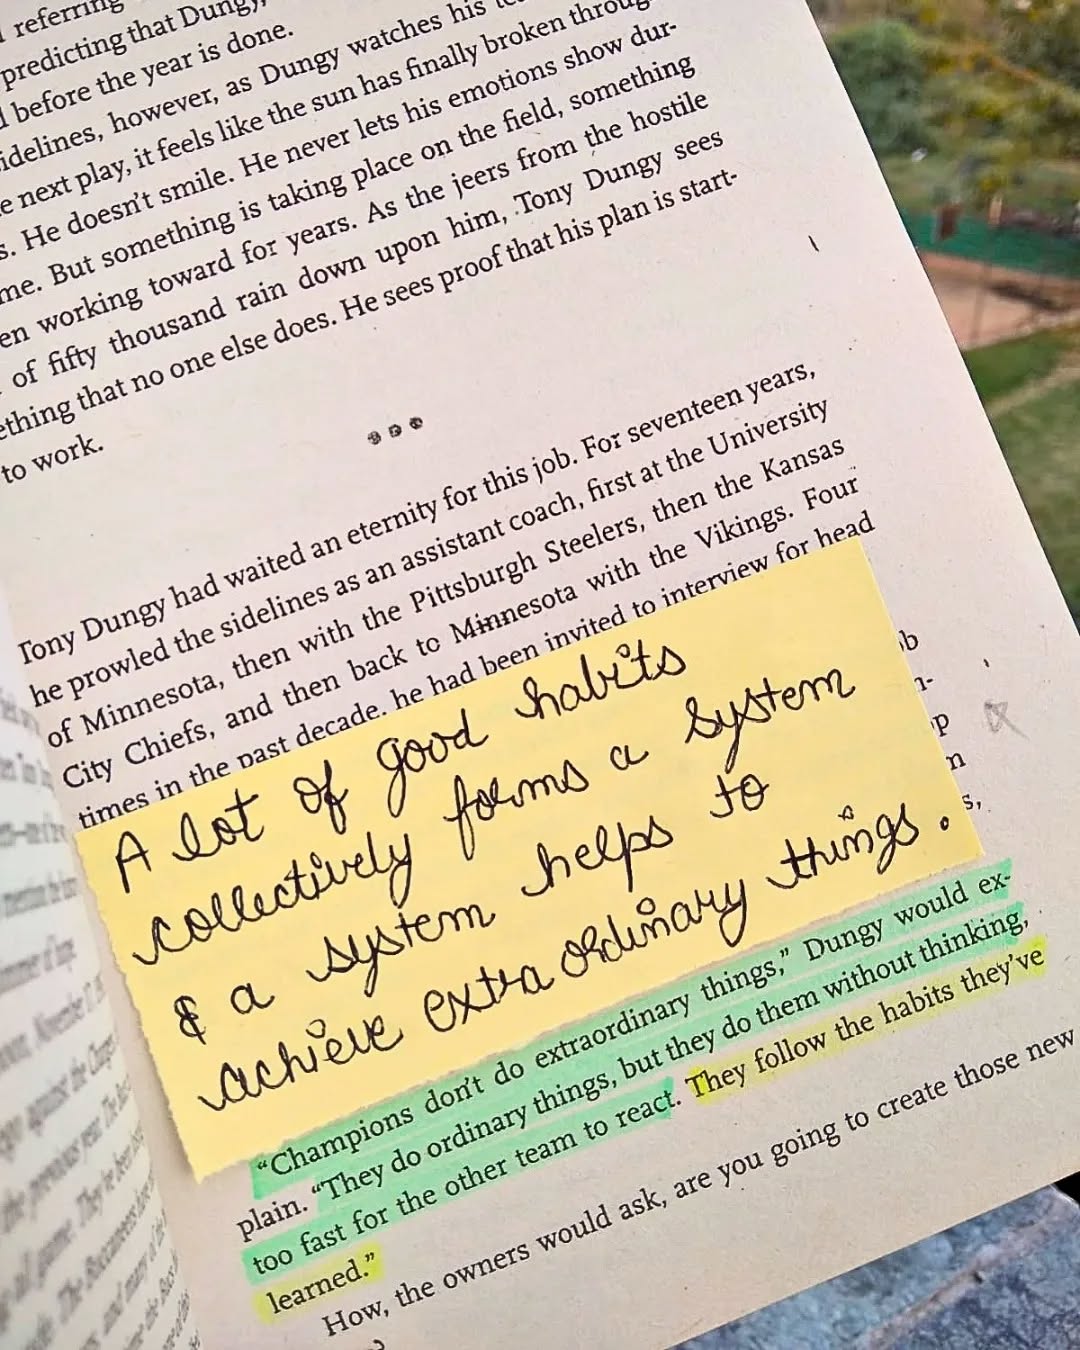 referring
predicting that Dungy,
before the year is done.
idelines, however, as Dungy watches his
e next play, it feels like the sun has finally broken throug
s. He doesn't smile. He never lets his emotions show dur-
me. But something is taking place on the field, something
en working toward for years. As the jeers from the hostile
of fifty thousand rain down upon him, Tony Dungy sees
ething that no one else does. He sees proof that his plan is start-
to work.
Tony Dungy had waited an eternity for this job. For seventeen years,
he prowled the sidelines as an assistant coach, first at the University
of Minnesota, then with the Pittsburgh Steelers, then the Kansas
City Chiefs, and then back to Minnesota with the Vikings. Four
times in the past decade, he had been invited to interview for head
A lot of good habits
collectively forms a system
& a system helps to
achieve extra ordinary things.
"Champions don't do extraordinary things," Dungy would ex-
plain. "They do ordinary things, but they do them without thinking,
too fast for the other team to react. They follow the habits they've
learned."
How, the owners would ask, are you going to create those new